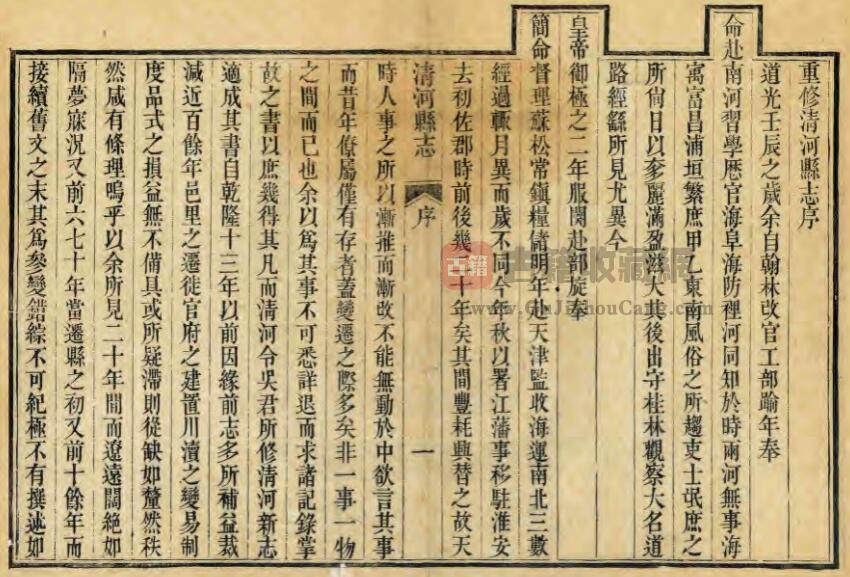 重修清河縣志序
道光壬辰之歲余自翰林改官工部踰年奉
命赴南河習學歷官海阜海防裡河同知於時兩河無事海
寓富昌浦垣繁庶甲乙東南風俗之所趨吏士氓庶之
所尙日以奓麗滿盈滋大其後出守桂林觀察大名道
路經繇所見尤異今
皇帝御極之二年服闋赴部旋奉
簡命督理蘇松常鎮糧儲明年赴天津監收海運南北三數
經過輒月異而歲不同今年秋以署江藩事移駐淮安
去初佐郡時前後幾二十年矣其間豐耗興替之故天
清河縣志 序 一
時人事之所以漸推而漸改不能無動於中欲言其事
而昔年僚屬僅有存者蓋變遷之際多矣非一事一物
之間而已也余以爲其事不可悉詳退而求諸記錄掌
故之書以庶幾得其凡而清河令吳君所修清河新志
適成其書自乾隆十三年以前因緣前志多所補益裁
減近百餘年邑里之遷徙官府之建置川瀆之變易制
度品式之損益無不備具或所疑滯則從缺如釐然秩
然咸有條理嗚乎以余所見二十年間而遼遠闊絕如
隔夢寐況又前六七十年當遷縣之初又前十餘年而
接續舊文之末其爲參變錯綜不可紀極不有撰述如
古籍
古籍收藏網
www.GuJiShouCang.com